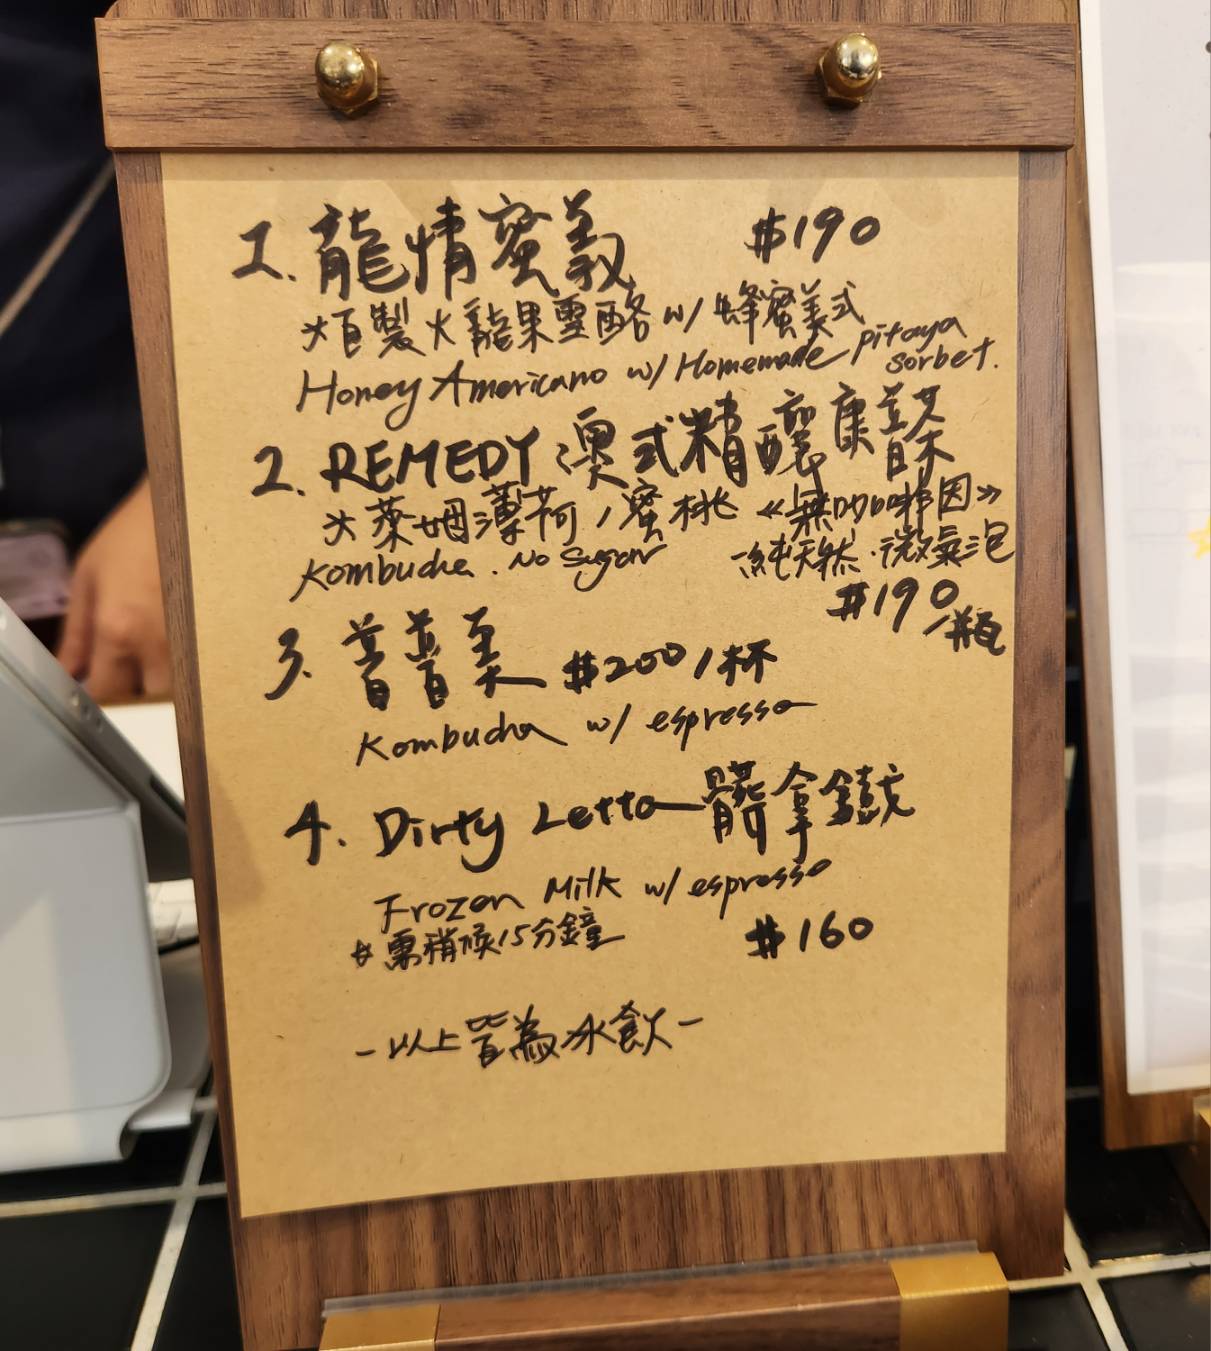 1. 龍情蜜義 $190
*自製火龍果雪酪 w/ 蜂蜜美式
Honey Americano w/ Homemade pitaya
sorbet.
2. REMEDY 澳式精釀康普茶
*萊姆薄荷/蜜桃 《無咖啡因》
Kombucha. No Sugar -純天然·微氣泡
$190/瓶
3. 普普美 $200/杯
Kombucha w/ espresso
4. Dirty Letta 髒拿鐵
Frozen Milk w/ espresso
*需稍候15分鐘 $160
-以上皆為冰飲-